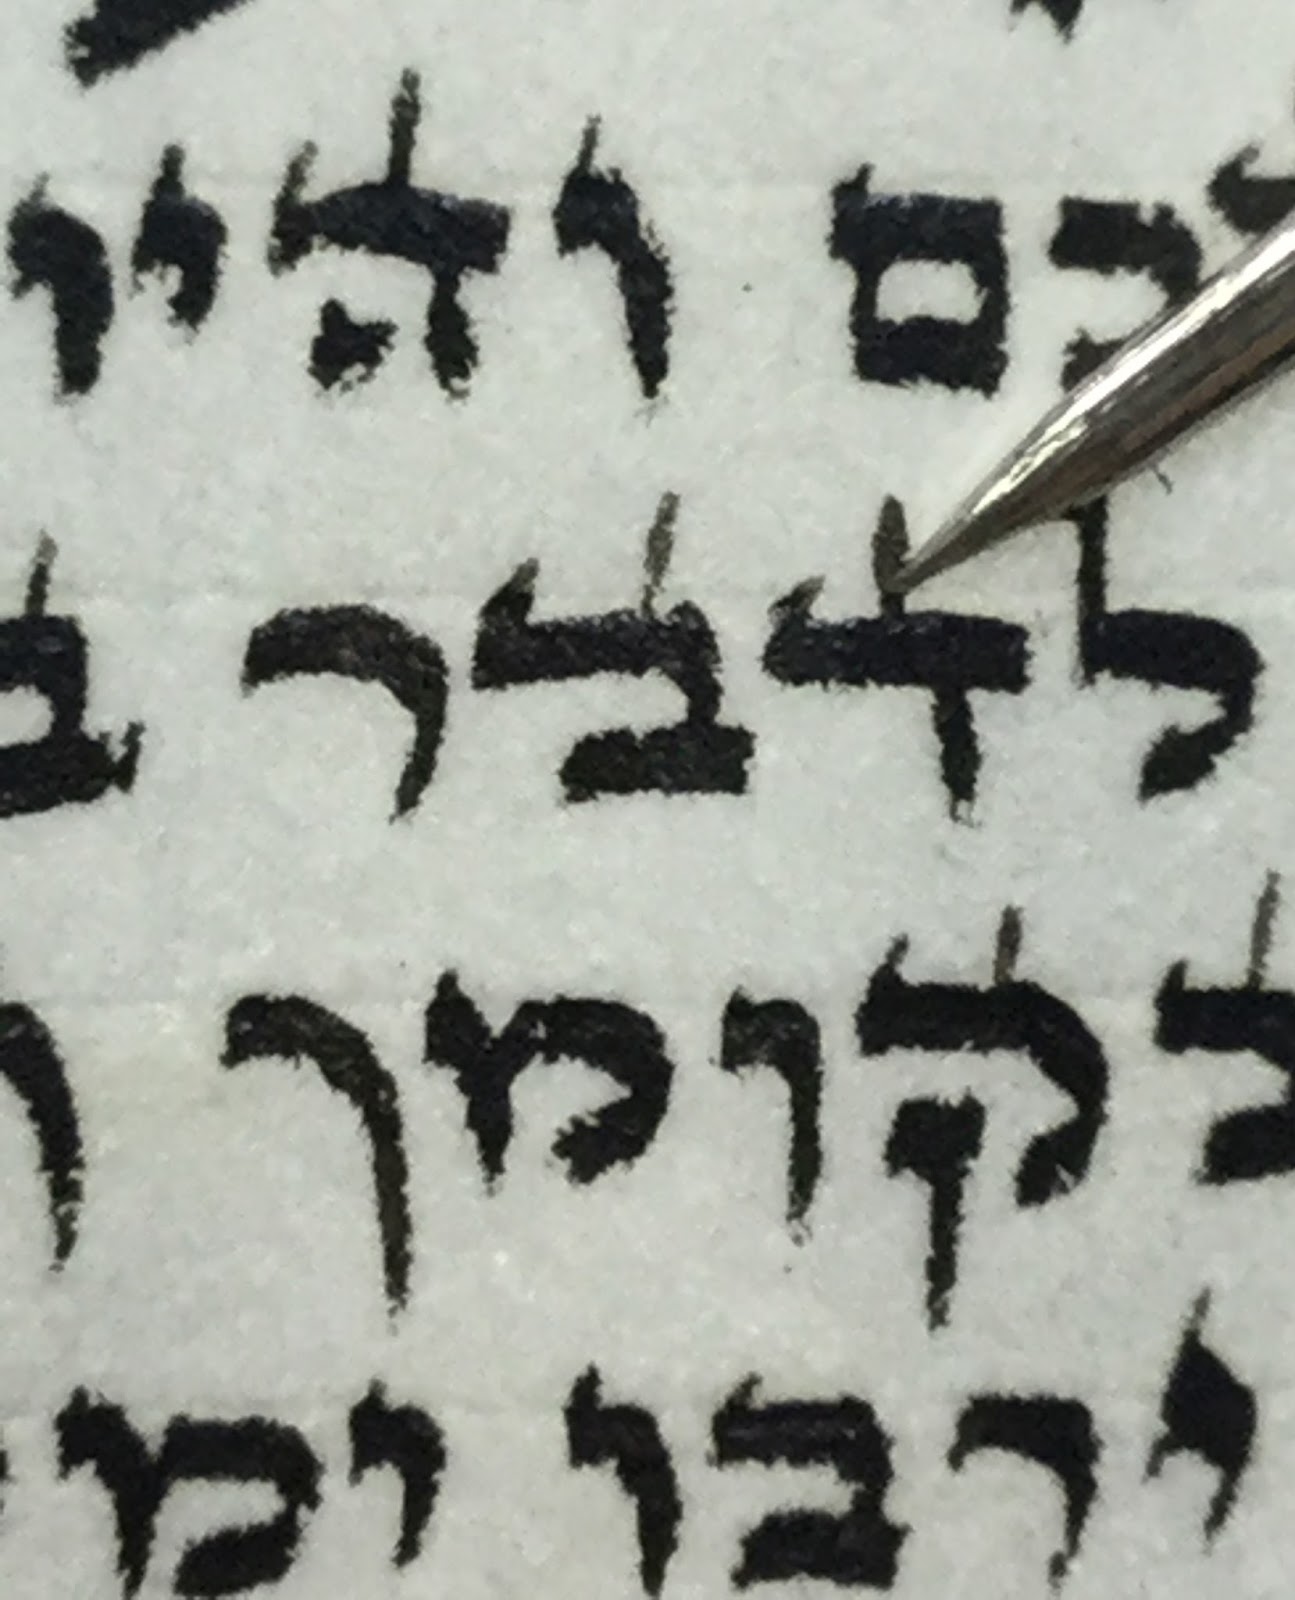 כם והיו
לדבר ב
בקומך ו
ירבו ימ